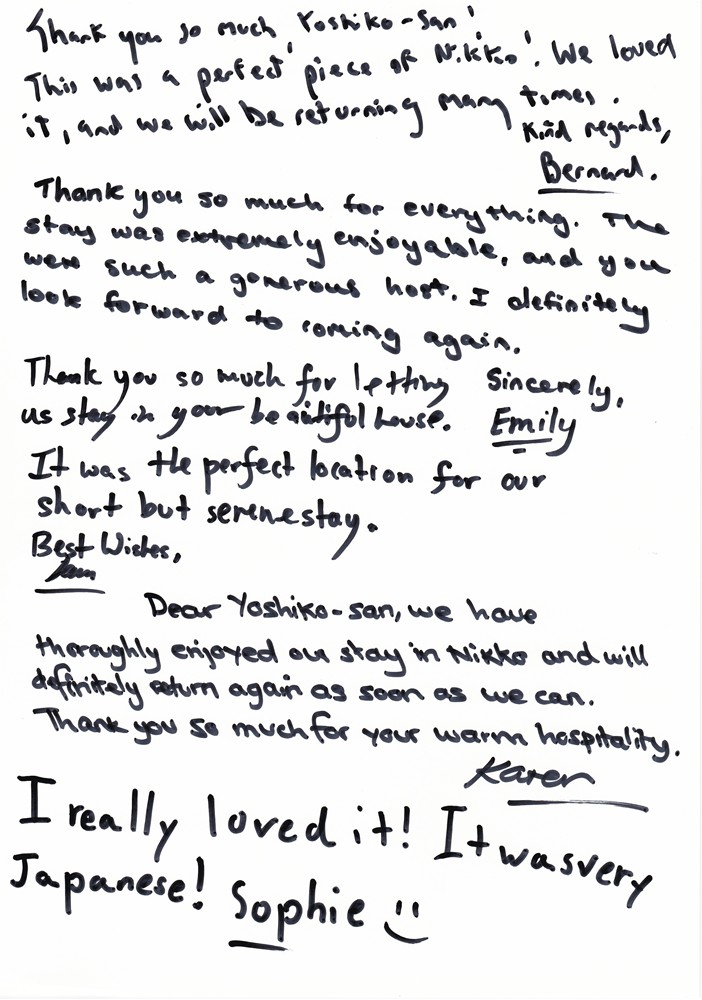 Thank you so much, Yoshiko-San!
This was a perfect piece of Nikko! We loved
it, and we will be returning many times.
Kind regards,
Bernard.
Thank you so much for everything. The
stay was extremely enjoyable, and you
were such a generous host. I definitely
look forward to coming again.
Sincerely,
Emily
Thank you so much for letting
us stay in your beautiful house.
It was the perfect location for our
short but serene stay.
Best Wishes,
Dear Yoshiko-san, we have
thoroughly enjoyed our stay in Nikko and will
definitely return again as soon as we can.
Thank you so much for your warm hospitality.
Karen
I really loved it! It was very
Japanese! Sophie